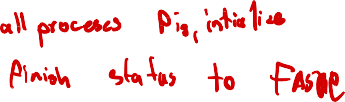 all proceses Pis, intialise
Finish status to False